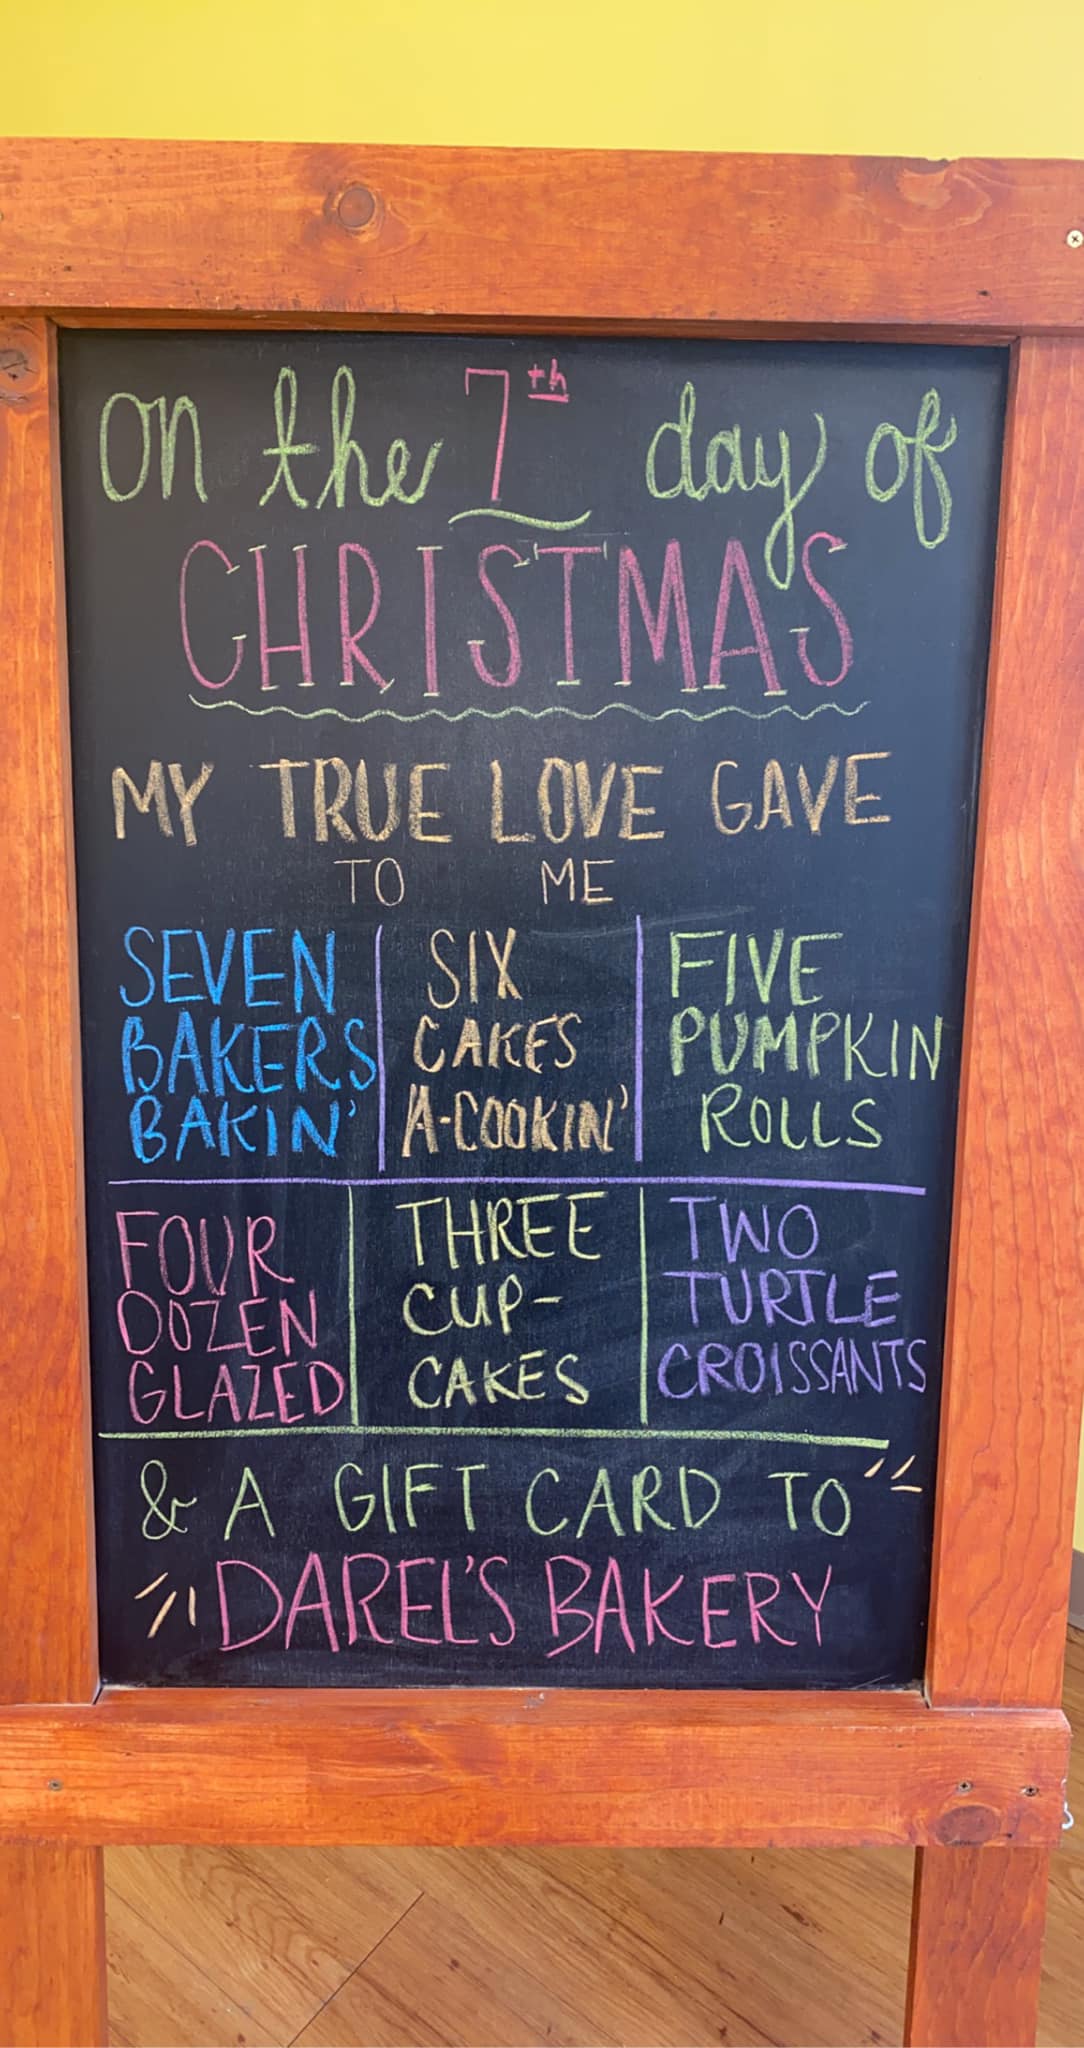 on the 7th day of
CHRISTMAS
MY TRUE LOVE GAVE
TO ME
SEVEN
BAKERS
BAKIN'
SIX
CAKES
A-COOKIN'
FIVE
PUMPKIN
ROLLS
FOUR
DOZEN
GLAZED
THREE
CUP-
CAKES
TWO
TURTLE
CROISSANTS
& A GIFT CARD TO
DAREL'S BAKERY